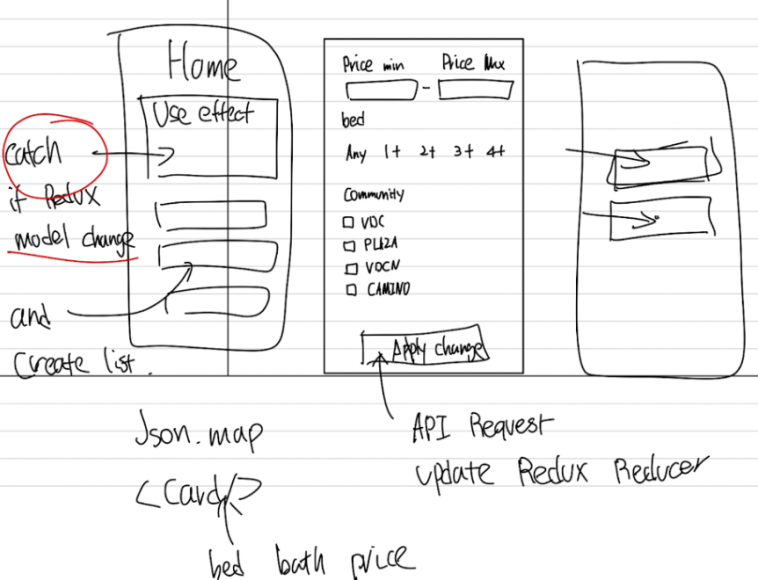 Home
Use effect
catch
if Redux
model change
and
Create list.
Price min Price Max
-
bed
Any 1+ 2+ 3+ 4+
Community
VDC
PLAZA
VDCN
CAMINO
Apply change
Json.map
<Card/>
bed bath price
API Request
update Redux Reducer